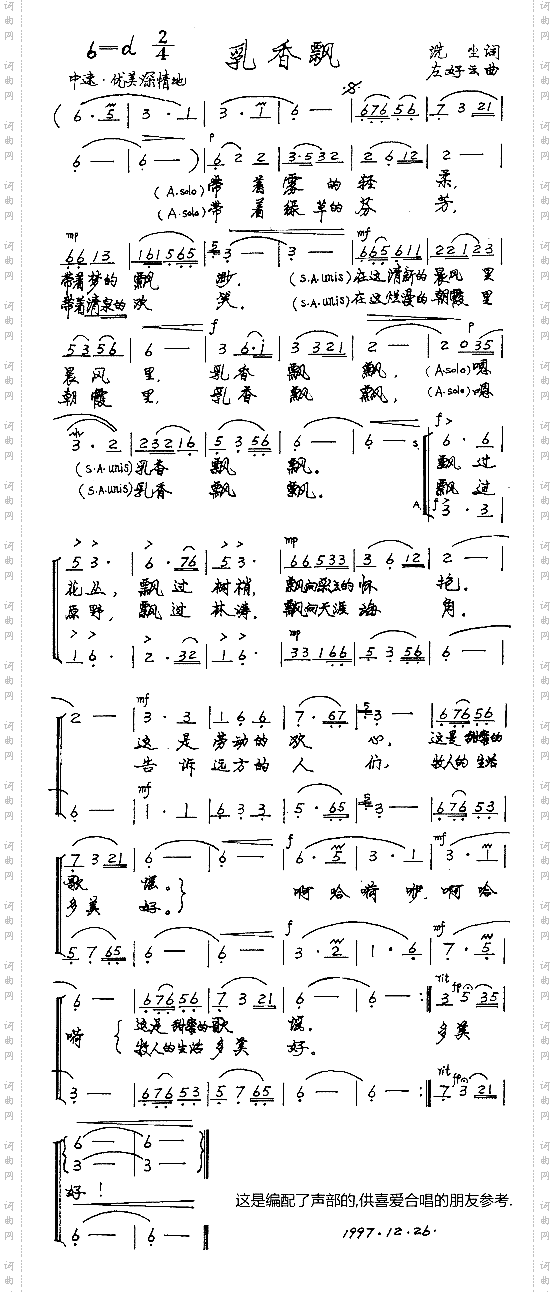 6=d 2/4
乳香飘
洗尘 词
左好云 曲
中速·优美深情地
( 6 · 5 | 3 · 1 | 3 · 1 | 6 — | 6765 6 | 7 3 21 |
6 — | 6 — ) | 6 2 2 | 3·5 3 2 | 2 6 12 | 2 — |
(A.solo)带着雾的轻柔,
(A.solo)带着绿草的芬芳,
6 6 1 3 | 161 565 | 3 — | 3 — | 665 611 | 221 23 |
带着梦的飘渺。 (S.A.unis)在这清新的晨风里
带着清泉的欢 (S.A.unis)在这烂漫的朝霞里
5 3 5 6 | 6 — | 3 6·1 | 3 321 | 2 — | 2 035 |
晨风里, 乳香飘飘, (A.solo)嗯
朝霞里, 乳香飘飘, (A.solo)嗯
3 · 2 | 2321 6 | 5 3 56 | 6 — | 6 — | 6 · 6
(S.A.unis)乳香飘飘。 飘过
(S.A.unis)乳香飘飘。 飘过
3 · 3
5 3 · | 6 · 76 | 5 3 · | 66533 | 3 6 12 | 2 — |
花丛, 飘过树梢, 飘向的怀抱。
原野, 飘过林涛, 飘向天涯海角。
1 6 · | 2 · 32 | 1 6 · | 33 166 | 5 3 56 | 6 — |
2 — | 3 · 3 | 1 6 6 | 7 · 67 | 3 — | 676 56 |
这是劳动的欢心, 这是甜蜜的
告诉远方的人们, 牧人的生活
6 — | 1 · 1 | 6 3 3 | 5 · 65 | 3 — | 676 53 |
7 3 21 | 6 — | 6 — | 6 · 5 | 3 · 1 | 3 · 1 |
歌谣。 啊哈嗬咿, 啊哈
多美好。
5 7 65 | 6 — | 6 — | 3 · 2 | 1 · 6 | 7 · 5 |
6 — | 676 56 | 7 3 21 | 6 — | 6 — :| 3 5 35
嗬 这是甜蜜的歌谣。 多美
牧人的生活多美好。
3 — | 676 53 | 5 7 65 | 6 — | 6 — :| 7 3 21
6 — | 6 —
3 — | 3 —
好!
6 — | 6 —
这是编配了声部的,供喜爱合唱的朋友参考.
1997.12.26.
词曲网